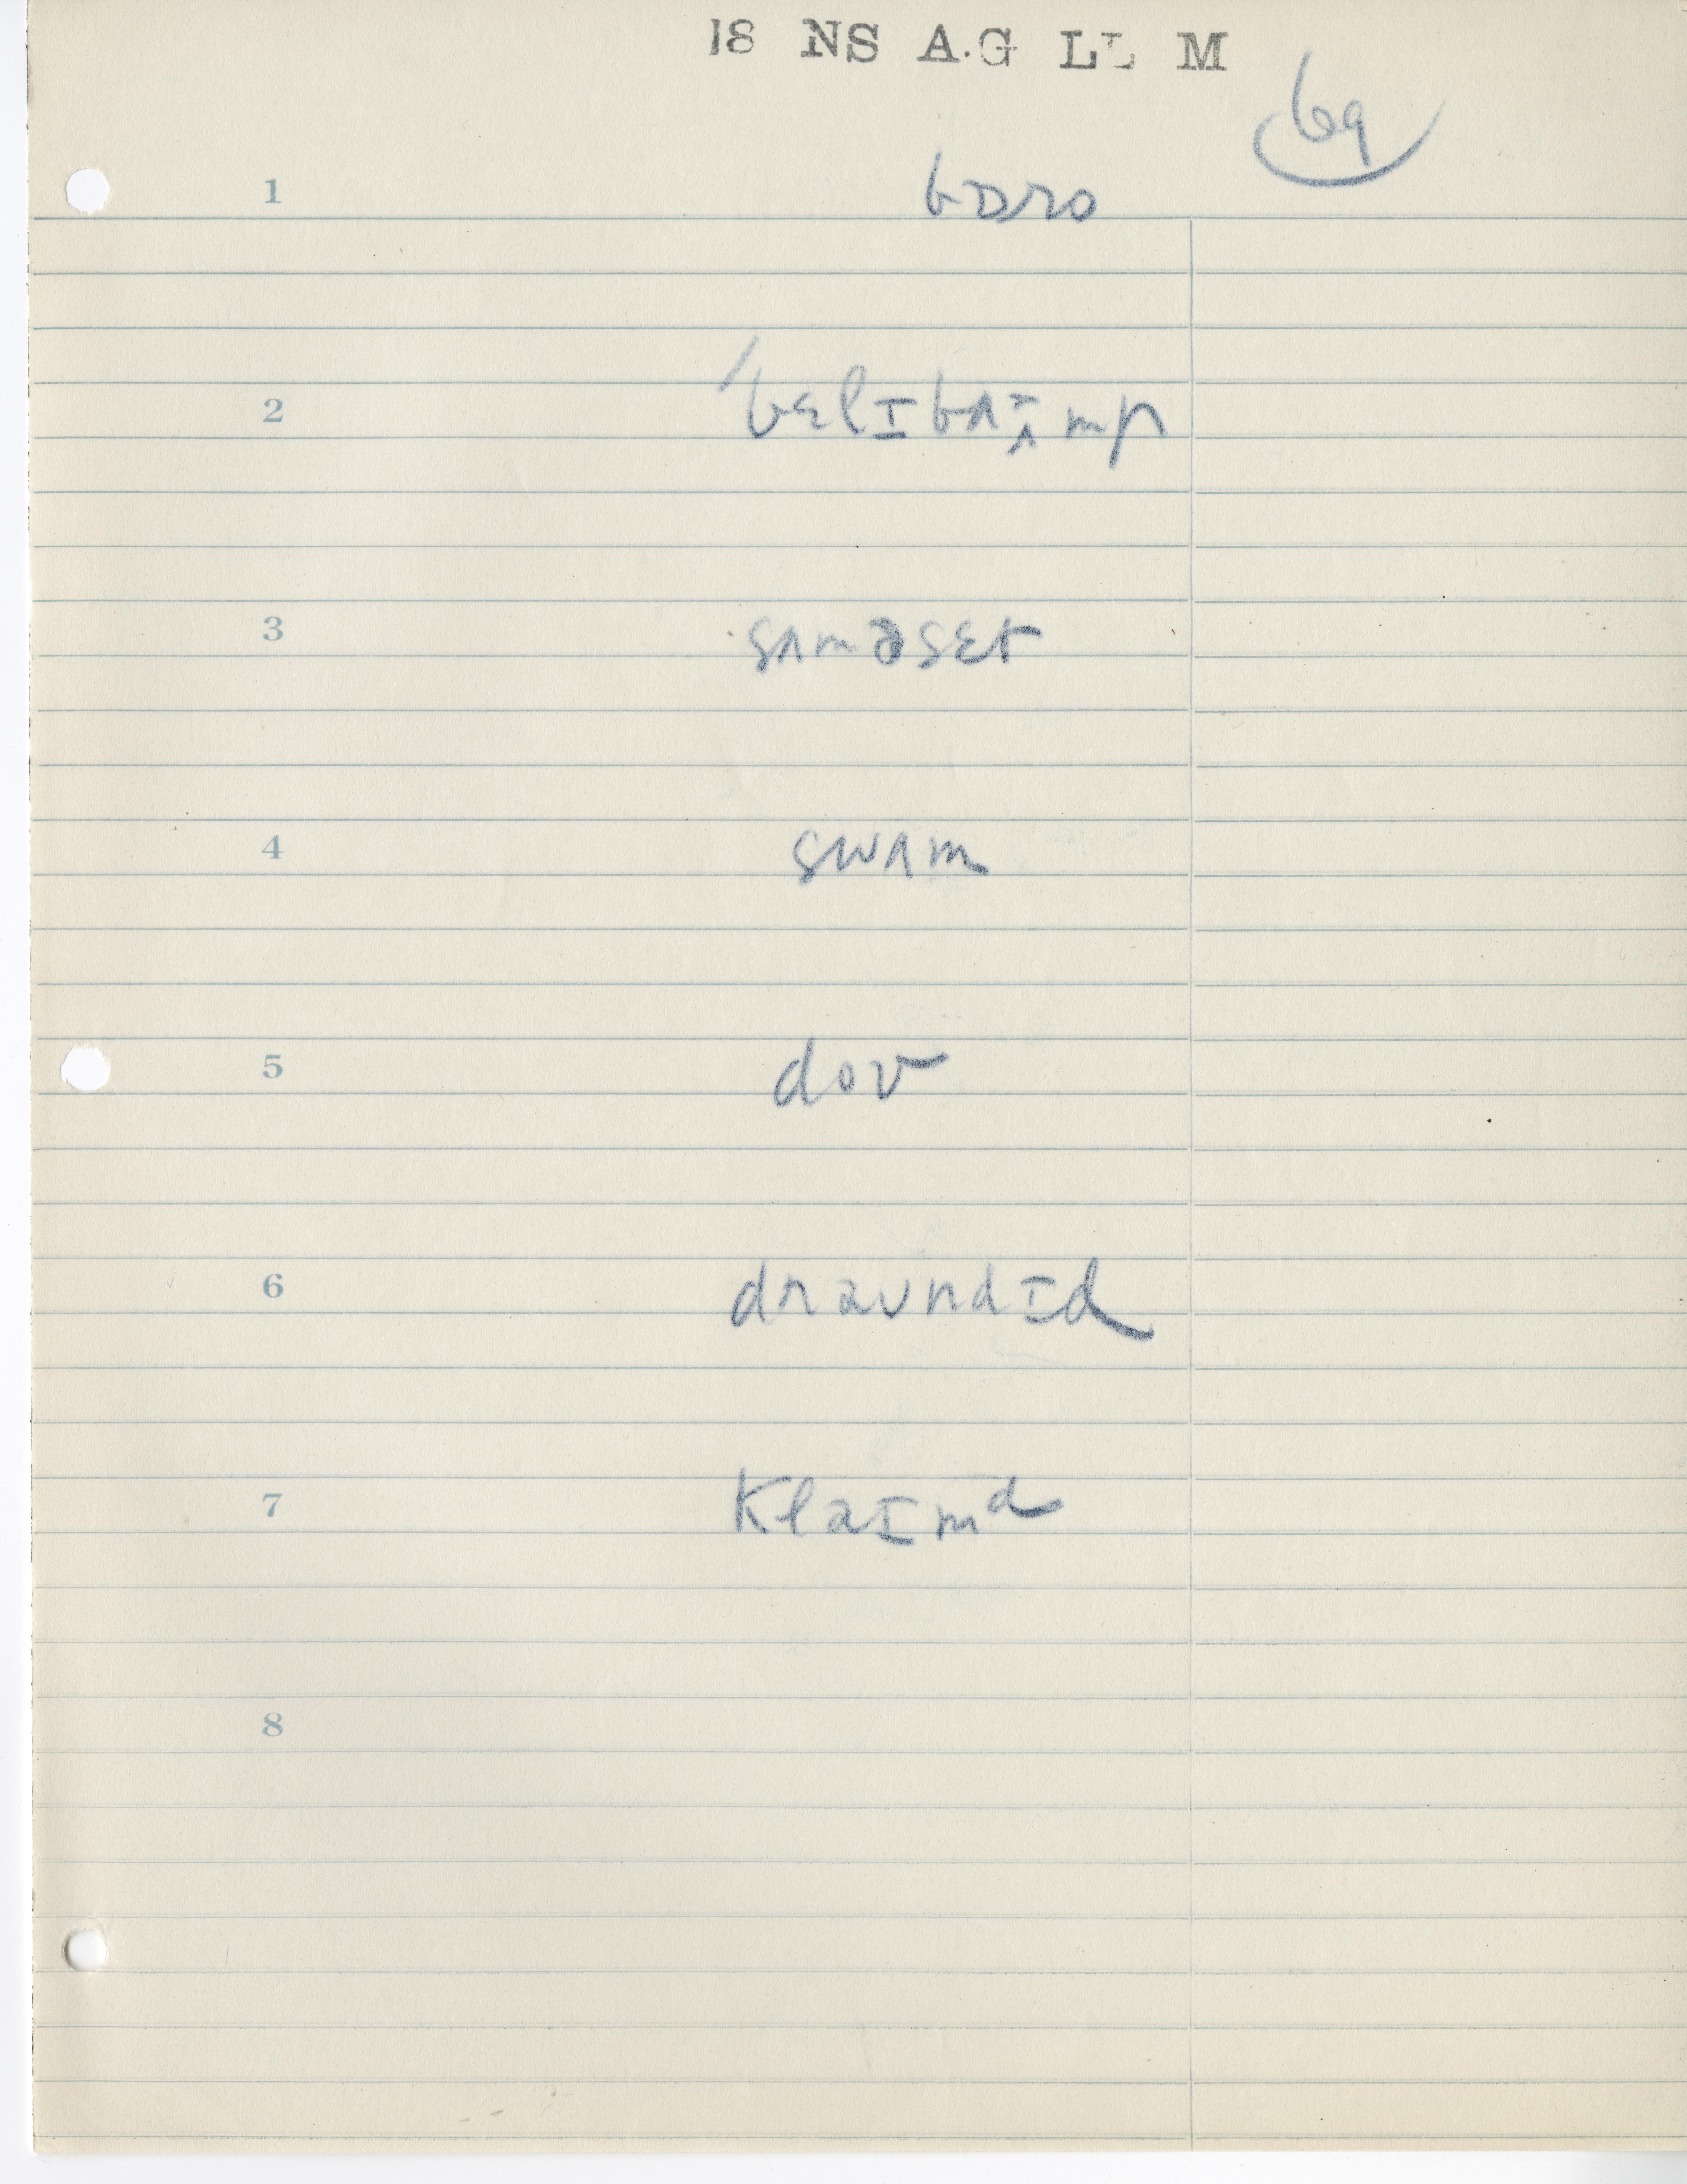 18 NS A.G LL M
69
1 bɒro
2 ˈbɛlɪbʌɪmp
3 sʌməsɛt
4 swʌm
5 dov
6 draʊndɪd
7 klaɪmd
8